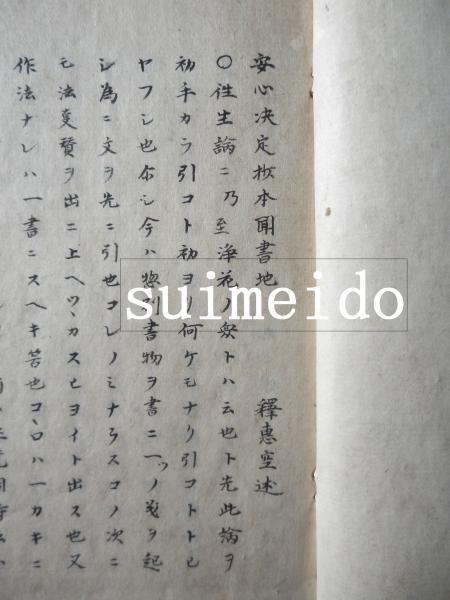 安心决定抄本聞書地
釋惠空述
〇往生論ニ乃至浄花ノ衆トハ云也ト先此論ヲ
初手カラ引コト初ヨリ何ケモナリ引コトトヒ
ヤフシ也尒シ今ハ惣別書物ヲ書ニ一ツノ義ヲ起
シ為ニ文ヲ先ニ引也コレノミナラスコノ次ニ
モ法蔓賛ヲ出ニ上ヘツヽカスヒヨイト出ス也又
作法ナレハ一書ニスヘキ筈也コヽロハ一カキニ
suimeido